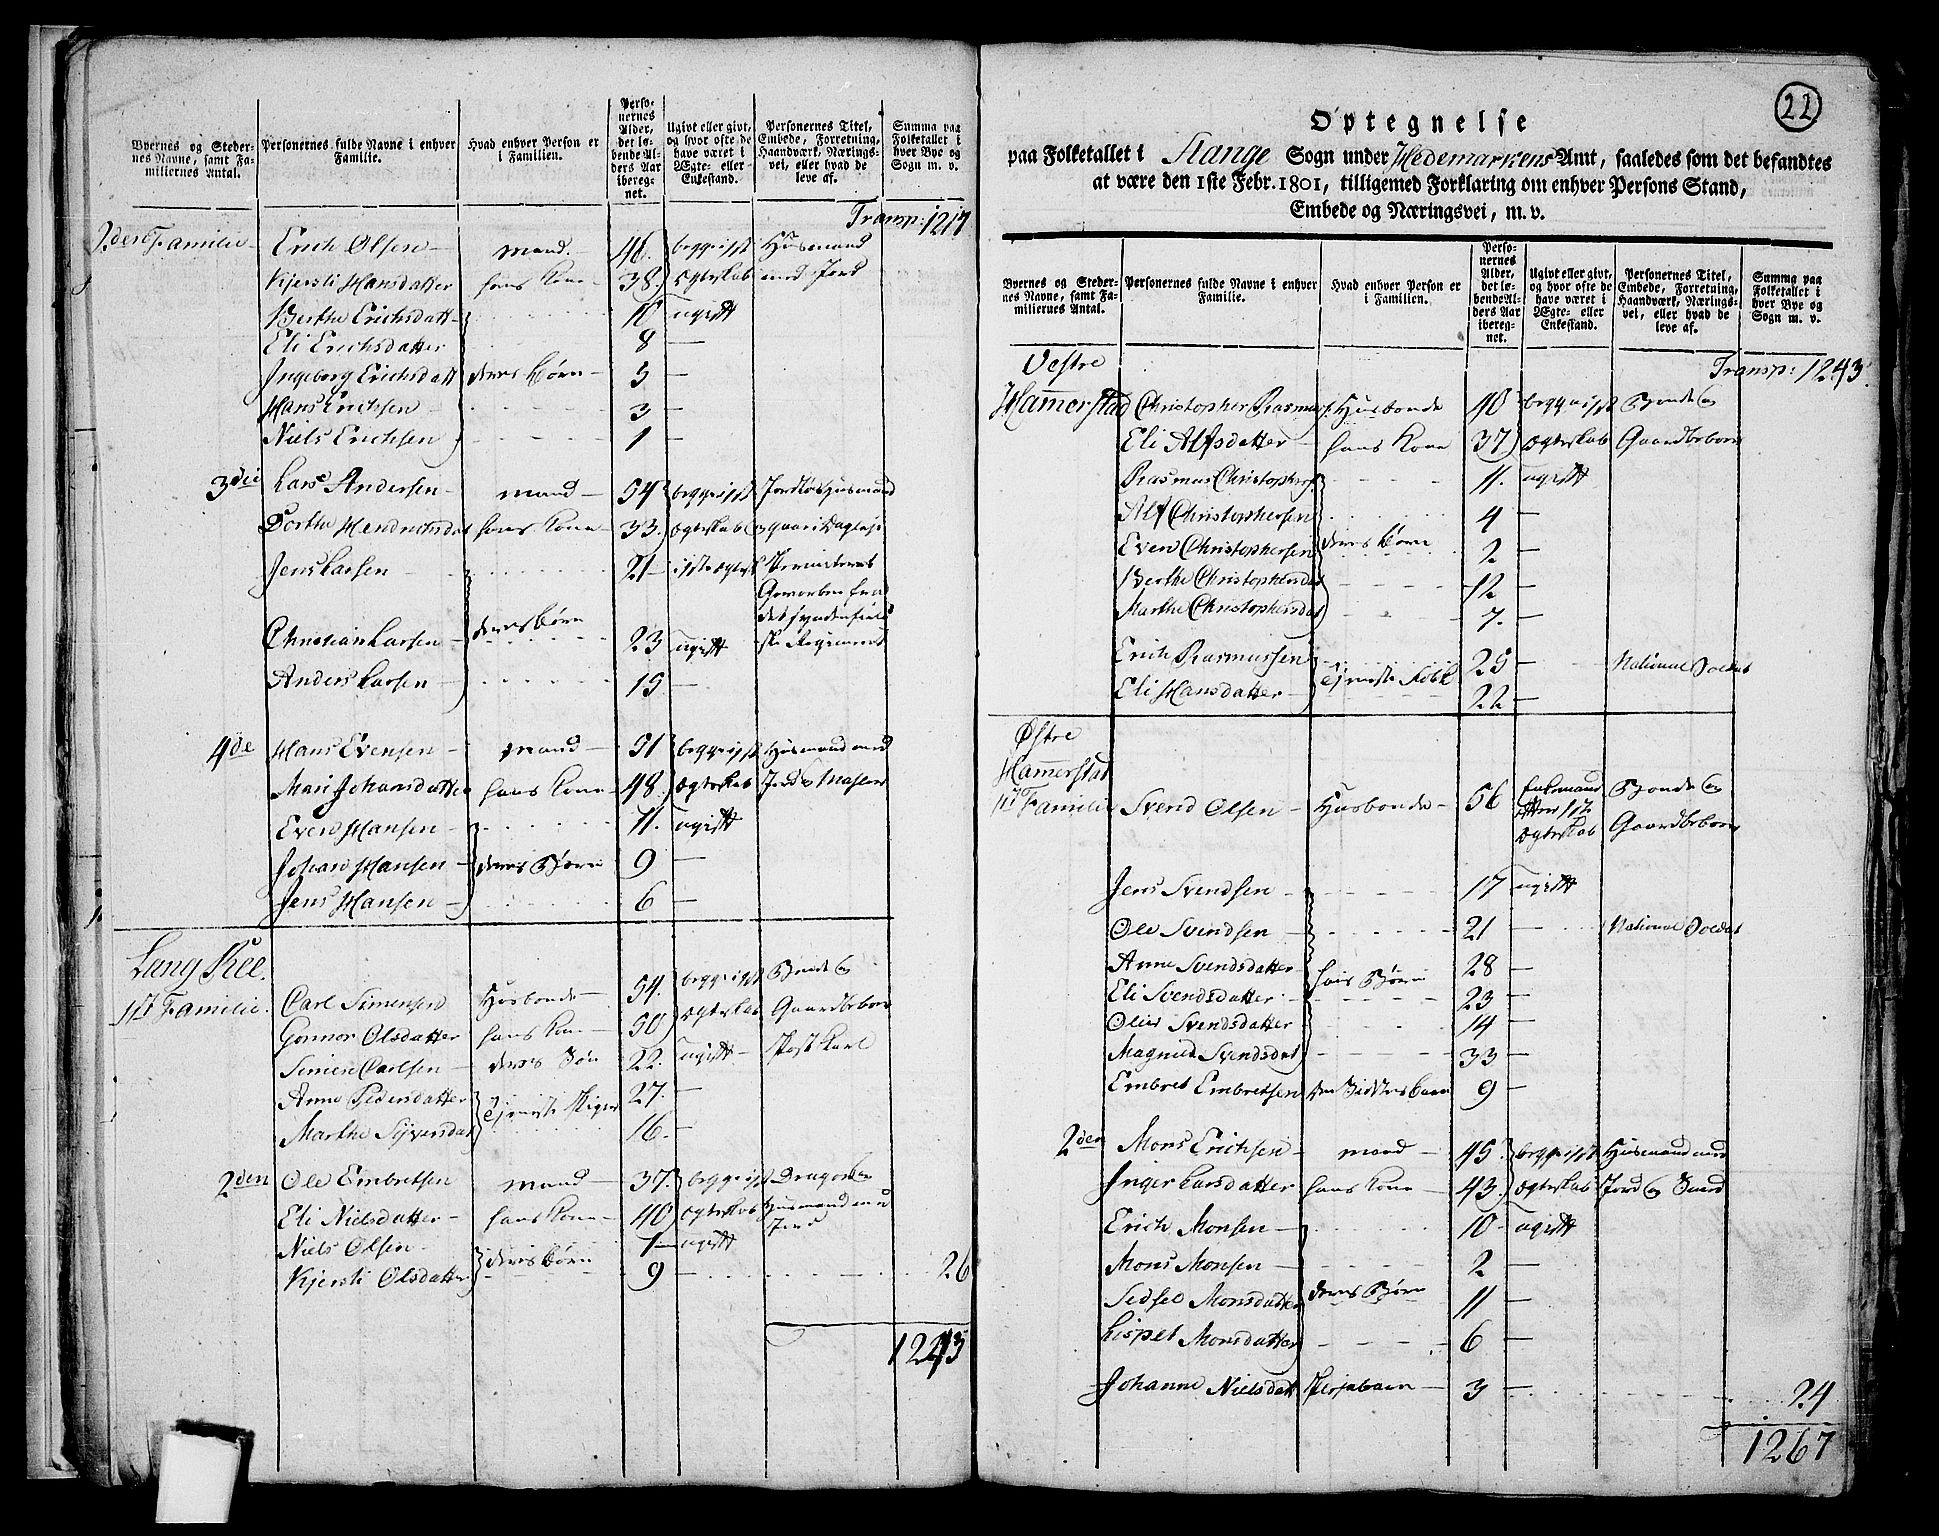 Byernes og Stedernes Navne, samt Familiernes Antal. | Personernes fulde Navne i enhver Familie. | Hvad enhver Person er i Familien. | Personernes Alder, det løbende Alders Aar iberegnet. | Ugivt eller givt, og hvor ofte de have været i Ægte- eller Enkestand. | Personernes Titel, Embede, Forretning, Haandværk, Næringsvei, eller hvad de leve af. | Summa paa Folketallet i hver Bye og Sogn m. v.
Transp: 1217
2den Familie Erich Olsen mand 46. begge i 1ste Huusmand
Kjersti Hansdatter hans Kone 38. Ægteskab med Jord
Berthe Erichsdatt 10 ugivt
Eli Erichsdatter 8 —
Ingeborg Erichsdatt deres Børn 5 —
Hans Erichsen 3 —
Niels Erichsen 1 —
3die Lars Andersen mand 54 begge i 1ste Jordløs Huusmand
Dorthe Hendrichsdat hans Kone 33. Ægteskab
Jens Larsen 21 i 1ste Ægtesk
Christian Larsen deres Børn 23 ugivt
Anders Larsen 15 —
4de Hans Evensen mand 51 begge i 1ste Huusmand med
Mari Johansdatter hans Kone 48. Ægteskab Jord
Even Hansen 11. ugivt
Johan Hansen deres Børn 9 —
Jens Hansen 6 —
Lang Kee.
1st Familie. Carl Simensen Husbonde 54. begge i 1ste Bonde og
Gonnor Olsdatter hans Kone 50 Ægteskab Gaardbeboer
Simen Carlsen deres Søn 22. ugivt Postkarl
Anne Pedersdatter 27. —
Marthe Syversdat Tjeneste Piger 16. —
2den Ole Embretsen mand 37. begge i 1ste Dragon og
Eli Nielsdatter hans Kone 40 Ægteskab Huusmand med
Niels Olsen deres Børn 1 ugivt Jord
Kjersti Olsdatter 9 — 26
1243
22
Optegnelse
paa Folketallet i Stange Sogn under Hedemarkens Amt, saaledes som det befandtes
at være den 1ste Febr. 1801, tilligemed Forklaring om enhver Persons Stand,
Embede og Næringsvei, m. v.
Byernes og Stedernes Navne, samt Familiernes Antal. | Personernes fulde Navne i enhver Familie. | Hvad enhver Person er i Familien. | Personernes Alder, det løbende Alders Aar iberegnet. | Ugivt eller givt, og hvor ofte de have været i Ægte- eller Enkestand. | Personernes Titel, Embede, Forretning, Haandværk, Næringsvei, eller hvad de leve af. | Summa paa Folketallet i hver Bye og Sogn m. v.
Vestre Transp: 1243.
Hamerstad Christopher Rasmus. Husbonde 40 begge i 1ste Bonde og
Eli Alfsdatter hans Kone 37 Ægteskab Gaardbeboer
Rasmus Christophers. 11. ugivt
Alf Christophersen 4 —
Even Christophersen deres Børn 2 —
Berthe Christophersdat 12 —
Marthe Christophersdat 7. —
Erich Rasmussen 25 — National Soldat
Eli Hansdatter Tjeneste Folk 22 —
Østre
Hamerstad
1st Familie Svend Olsen Husbonde 56 Enkemand Bonde og
Ægteskab Gaardbeboer
Jens Svendsen 17 ugivt
Ole Svendsen 21 — National Soldat
Anne Svendsdatter hans Børn 28 —
Eli Svendsdatter 23 —
Olea Svendsdatter 14 —
Magnild Svendsdat 33 —
Embret Embretsen 9 —
2den Mons Erichsen mand 45. begge i 1ste Huusmand med
Inger Larsdatter hans Kone 43. Ægteskab Jord og
Erich Monsen 10 ugivt
Mons Monsen 2 —
Sedsel Monsdatter deres Børn 11 —
Lispet Monsdatter 6 —
Johanne Nielsdatt 3 — 24
1267